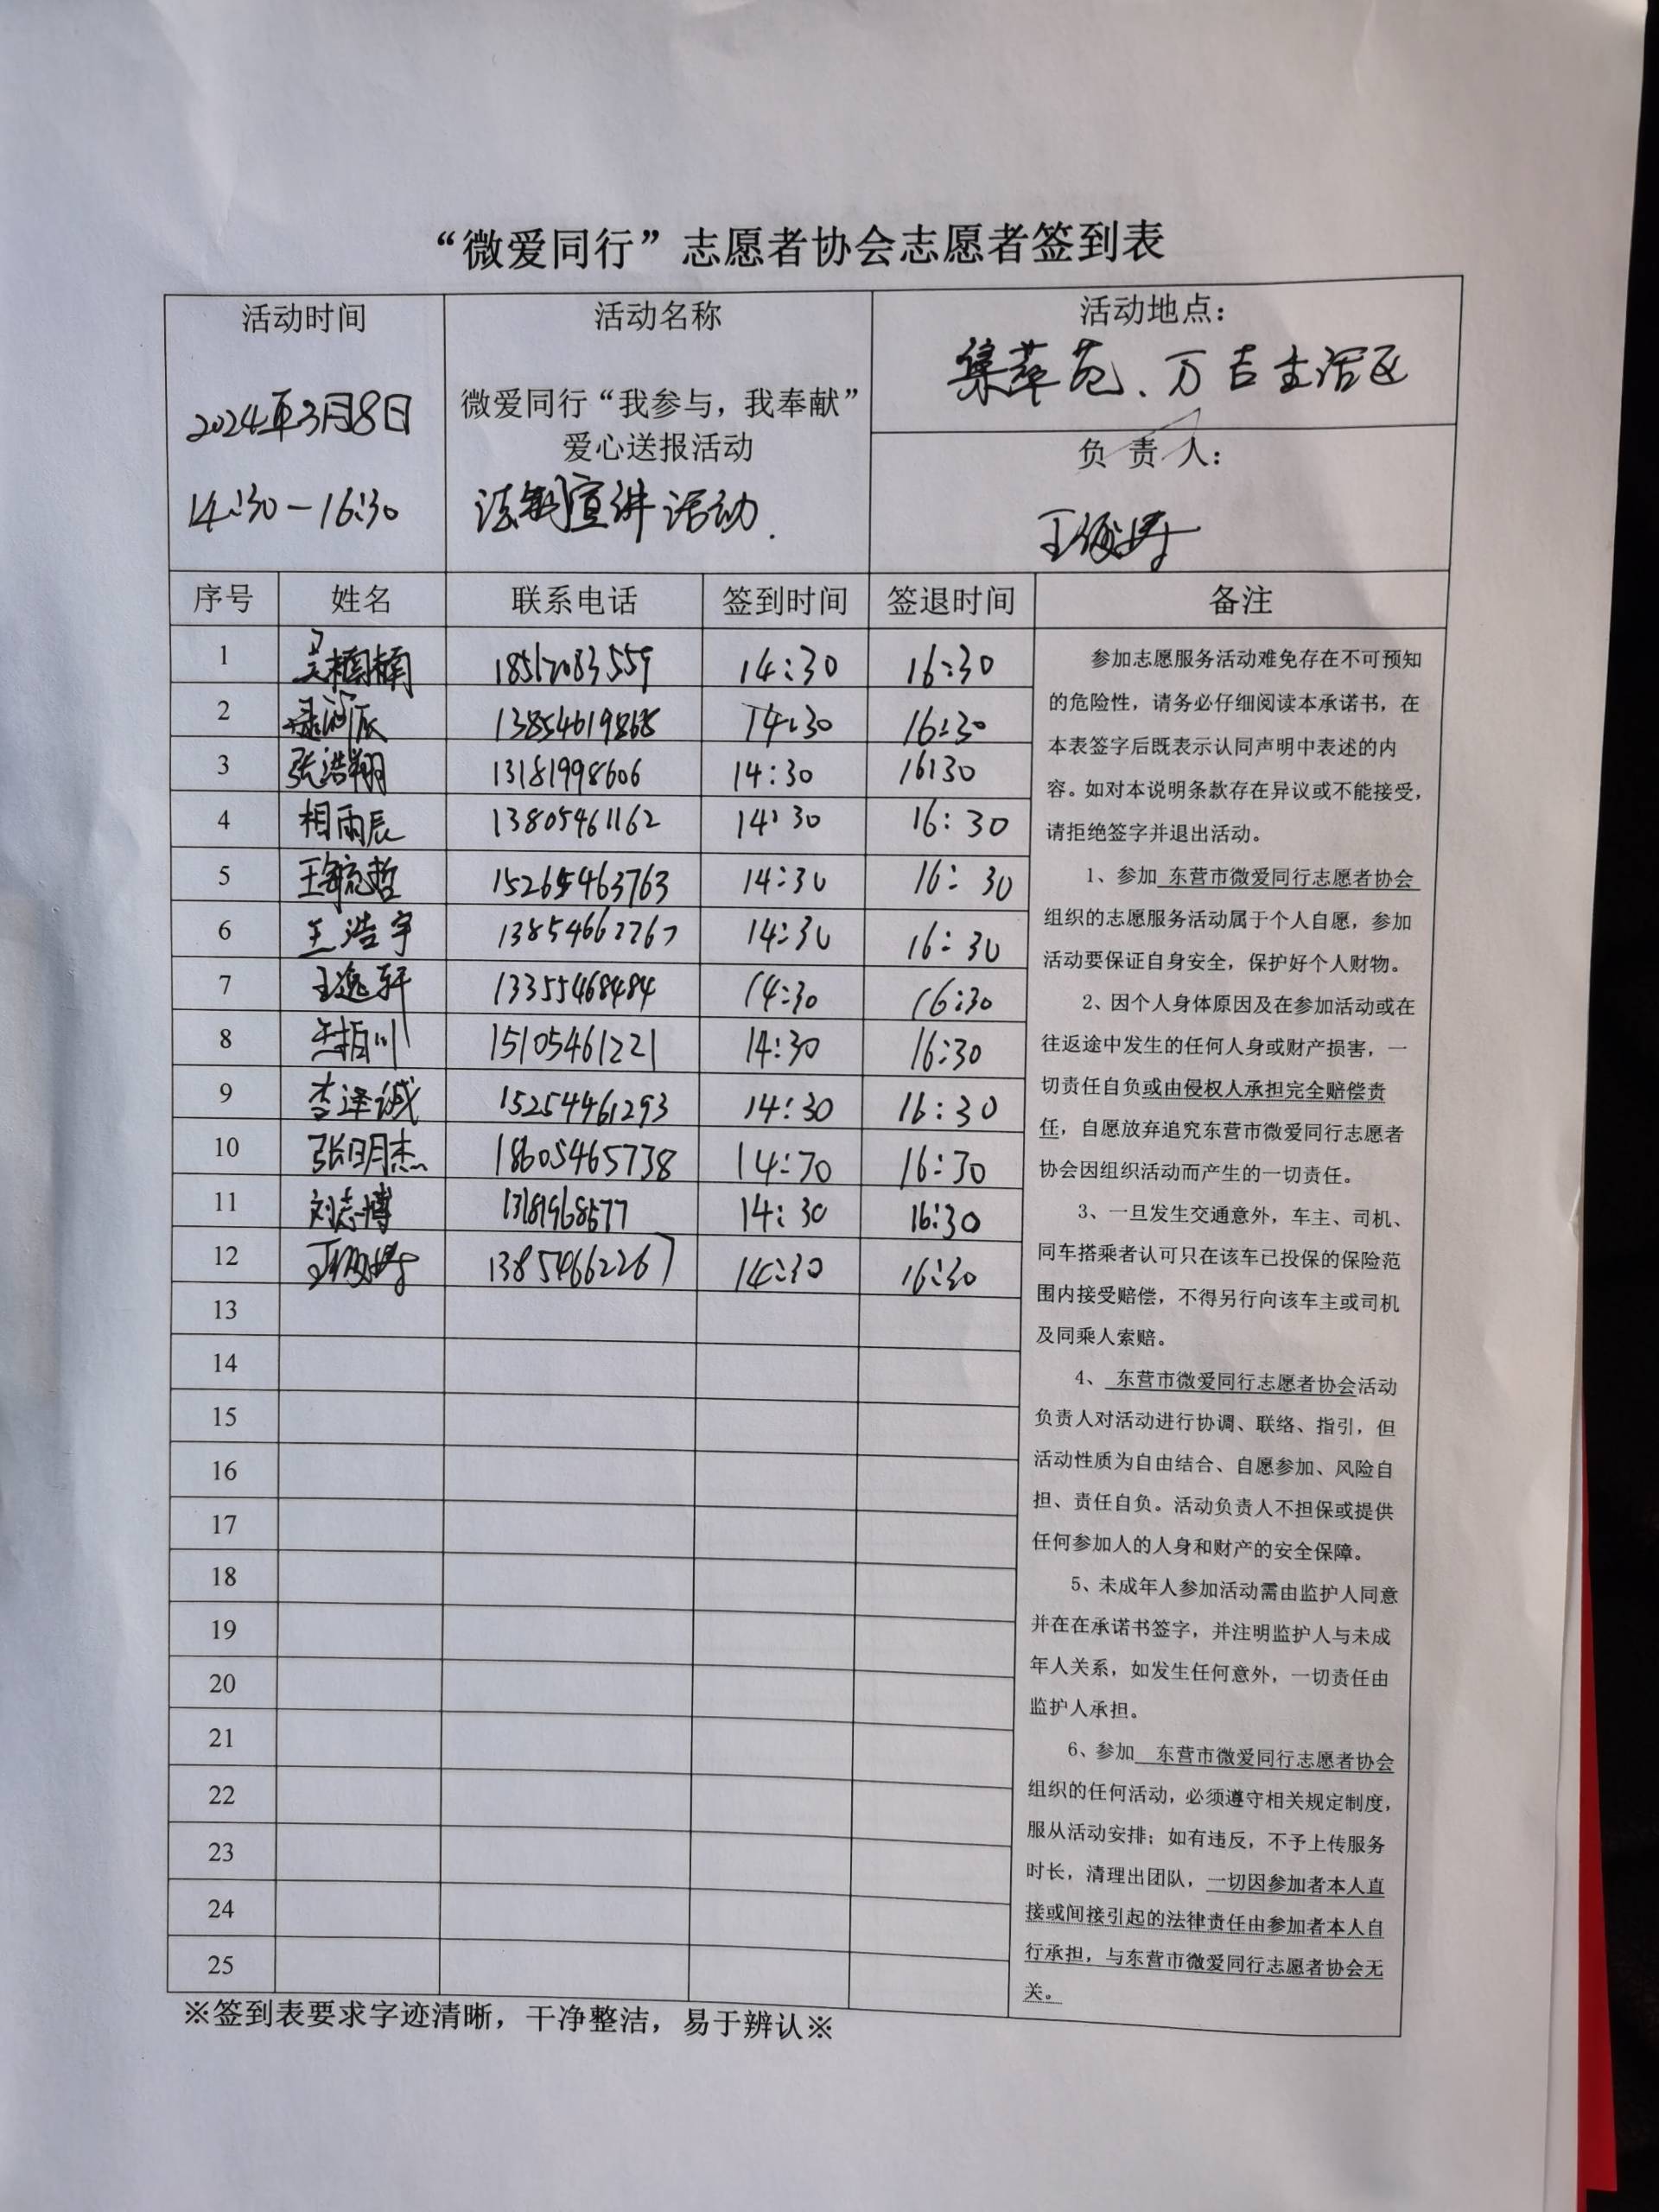 “微爱同行”志愿者协会志愿者签到表
活动时间
2024年3月8日
14:30－16:30
活动名称
微爱同行“我参与，我奉献”
爱心送报活动
法制宣讲活动.
活动地点：
集萃苑、万吉生活区
负 责 人：
序号 姓名 联系电话 签到时间 签退时间 备注
1 18512083559 14:30 16:30
2 13854619868 14:30 16:30
3 张浩翔 13181998606 14:30 16:30
4 相雨辰 13805461162 14:30 16:30
5 15265463763 14:30 16:30
6 王浩宇 13854662267 14:30 16:30
7 王逸轩 13355468484 14:30 16:30
8 15105461221 14:30 16:30
9 李泽诚 15254461293 14:30 16:30
10 张明杰 18605465738 14:30 16:30
11 刘志博 14:30 16:30
12 13854662267 14:30 16:30
13
14
15
16
17
18
19
20
21
22
23
24
25
参加志愿服务活动难免存在不可预知
的危险性，请务必仔细阅读本承诺书，在
本表签字后既表示认同声明中表述的内
容。如对本说明条款存在异议或不能接受，
请拒绝签字并退出活动。
1、参加 东营市微爱同行志愿者协会
组织的志愿服务活动属于个人自愿，参加
活动要保证自身安全，保护好个人财物。
2、因个人身体原因及在参加活动或在
往返途中发生的任何人身或财产损害，一
切责任自负或由侵权人承担完全赔偿责
任，自愿放弃追究东营市微爱同行志愿者
协会因组织活动而产生的一切责任。
3、一旦发生交通意外，车主、司机、
同车搭乘者认可只在该车已投保的保险范
围内接受赔偿，不得另行向该车主或司机
及同乘人索赔。
4、 东营市微爱同行志愿者协会活动
负责人对活动进行协调、联络、指引，但
活动性质为自由结合、自愿参加、风险自
担、责任自负。活动负责人不担保或提供
任何参加人的人身和财产的安全保障。
5、未成年人参加活动需由监护人同意
并在在承诺书签字，并注明监护人与未成
年人关系，如发生任何意外，一切责任由
监护人承担。
6、参加 东营市微爱同行志愿者协会
组织的任何活动，必须遵守相关规定制度，
服从活动安排；如有违反，不予上传服务
时长，清理出团队，一切因参加者本人直
接或间接引起的法律责任由参加者本人自
行承担，与东营市微爱同行志愿者协会无
关。
※签到表要求字迹清晰，干净整洁，易于辨认※